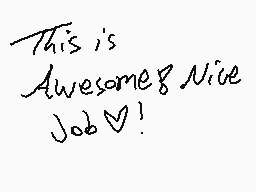 This is
Awesome & Nice
Job ♡!